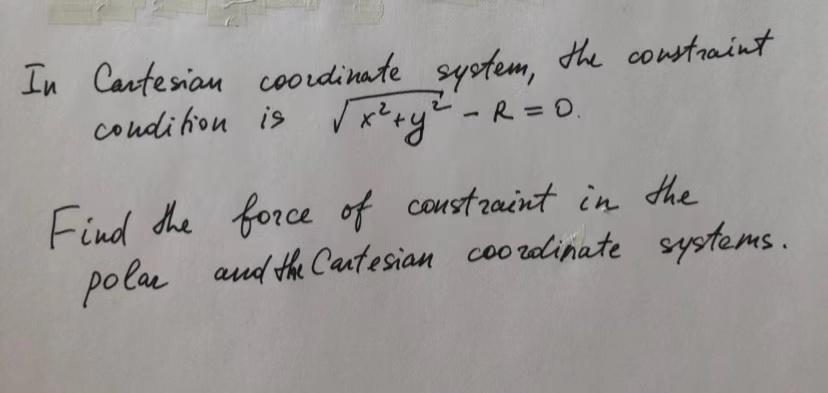 In Cartesian coordinate system, the constraint
condition is √x²+y² - R = 0.
Find the force of constraint in the
polar and the Cartesian coordinate systems.